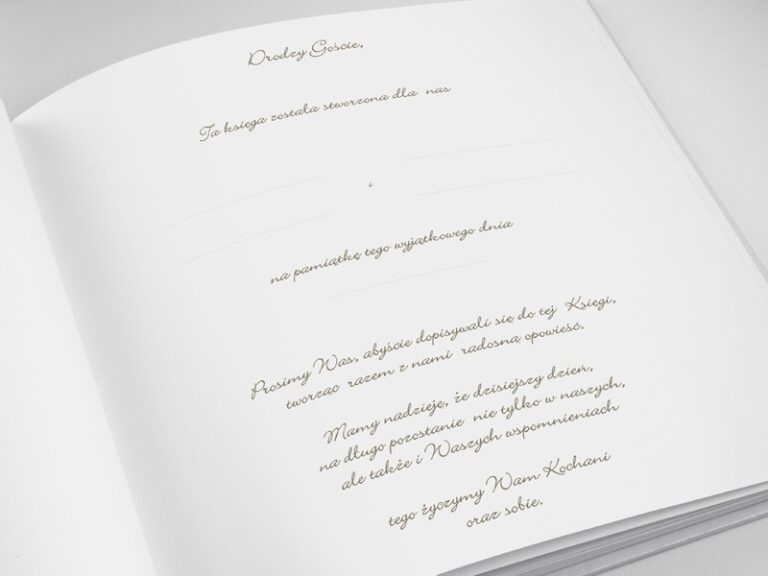 Drodzy Goście,
Ta księga została stworzona dla nas
i
na pamiątkę tego wyjątkowego dnia
Prosimy Was, abyście dopisywali się do tej Księgi,
tworząc razem z nami radosną opowieść.
Mamy nadzieję, że dzisiejszy dzień,
na długo pozostanie nie tylko w naszych,
ale także i Waszych wspomnieniach
tego życzymy Wam Kochani
oraz sobie.